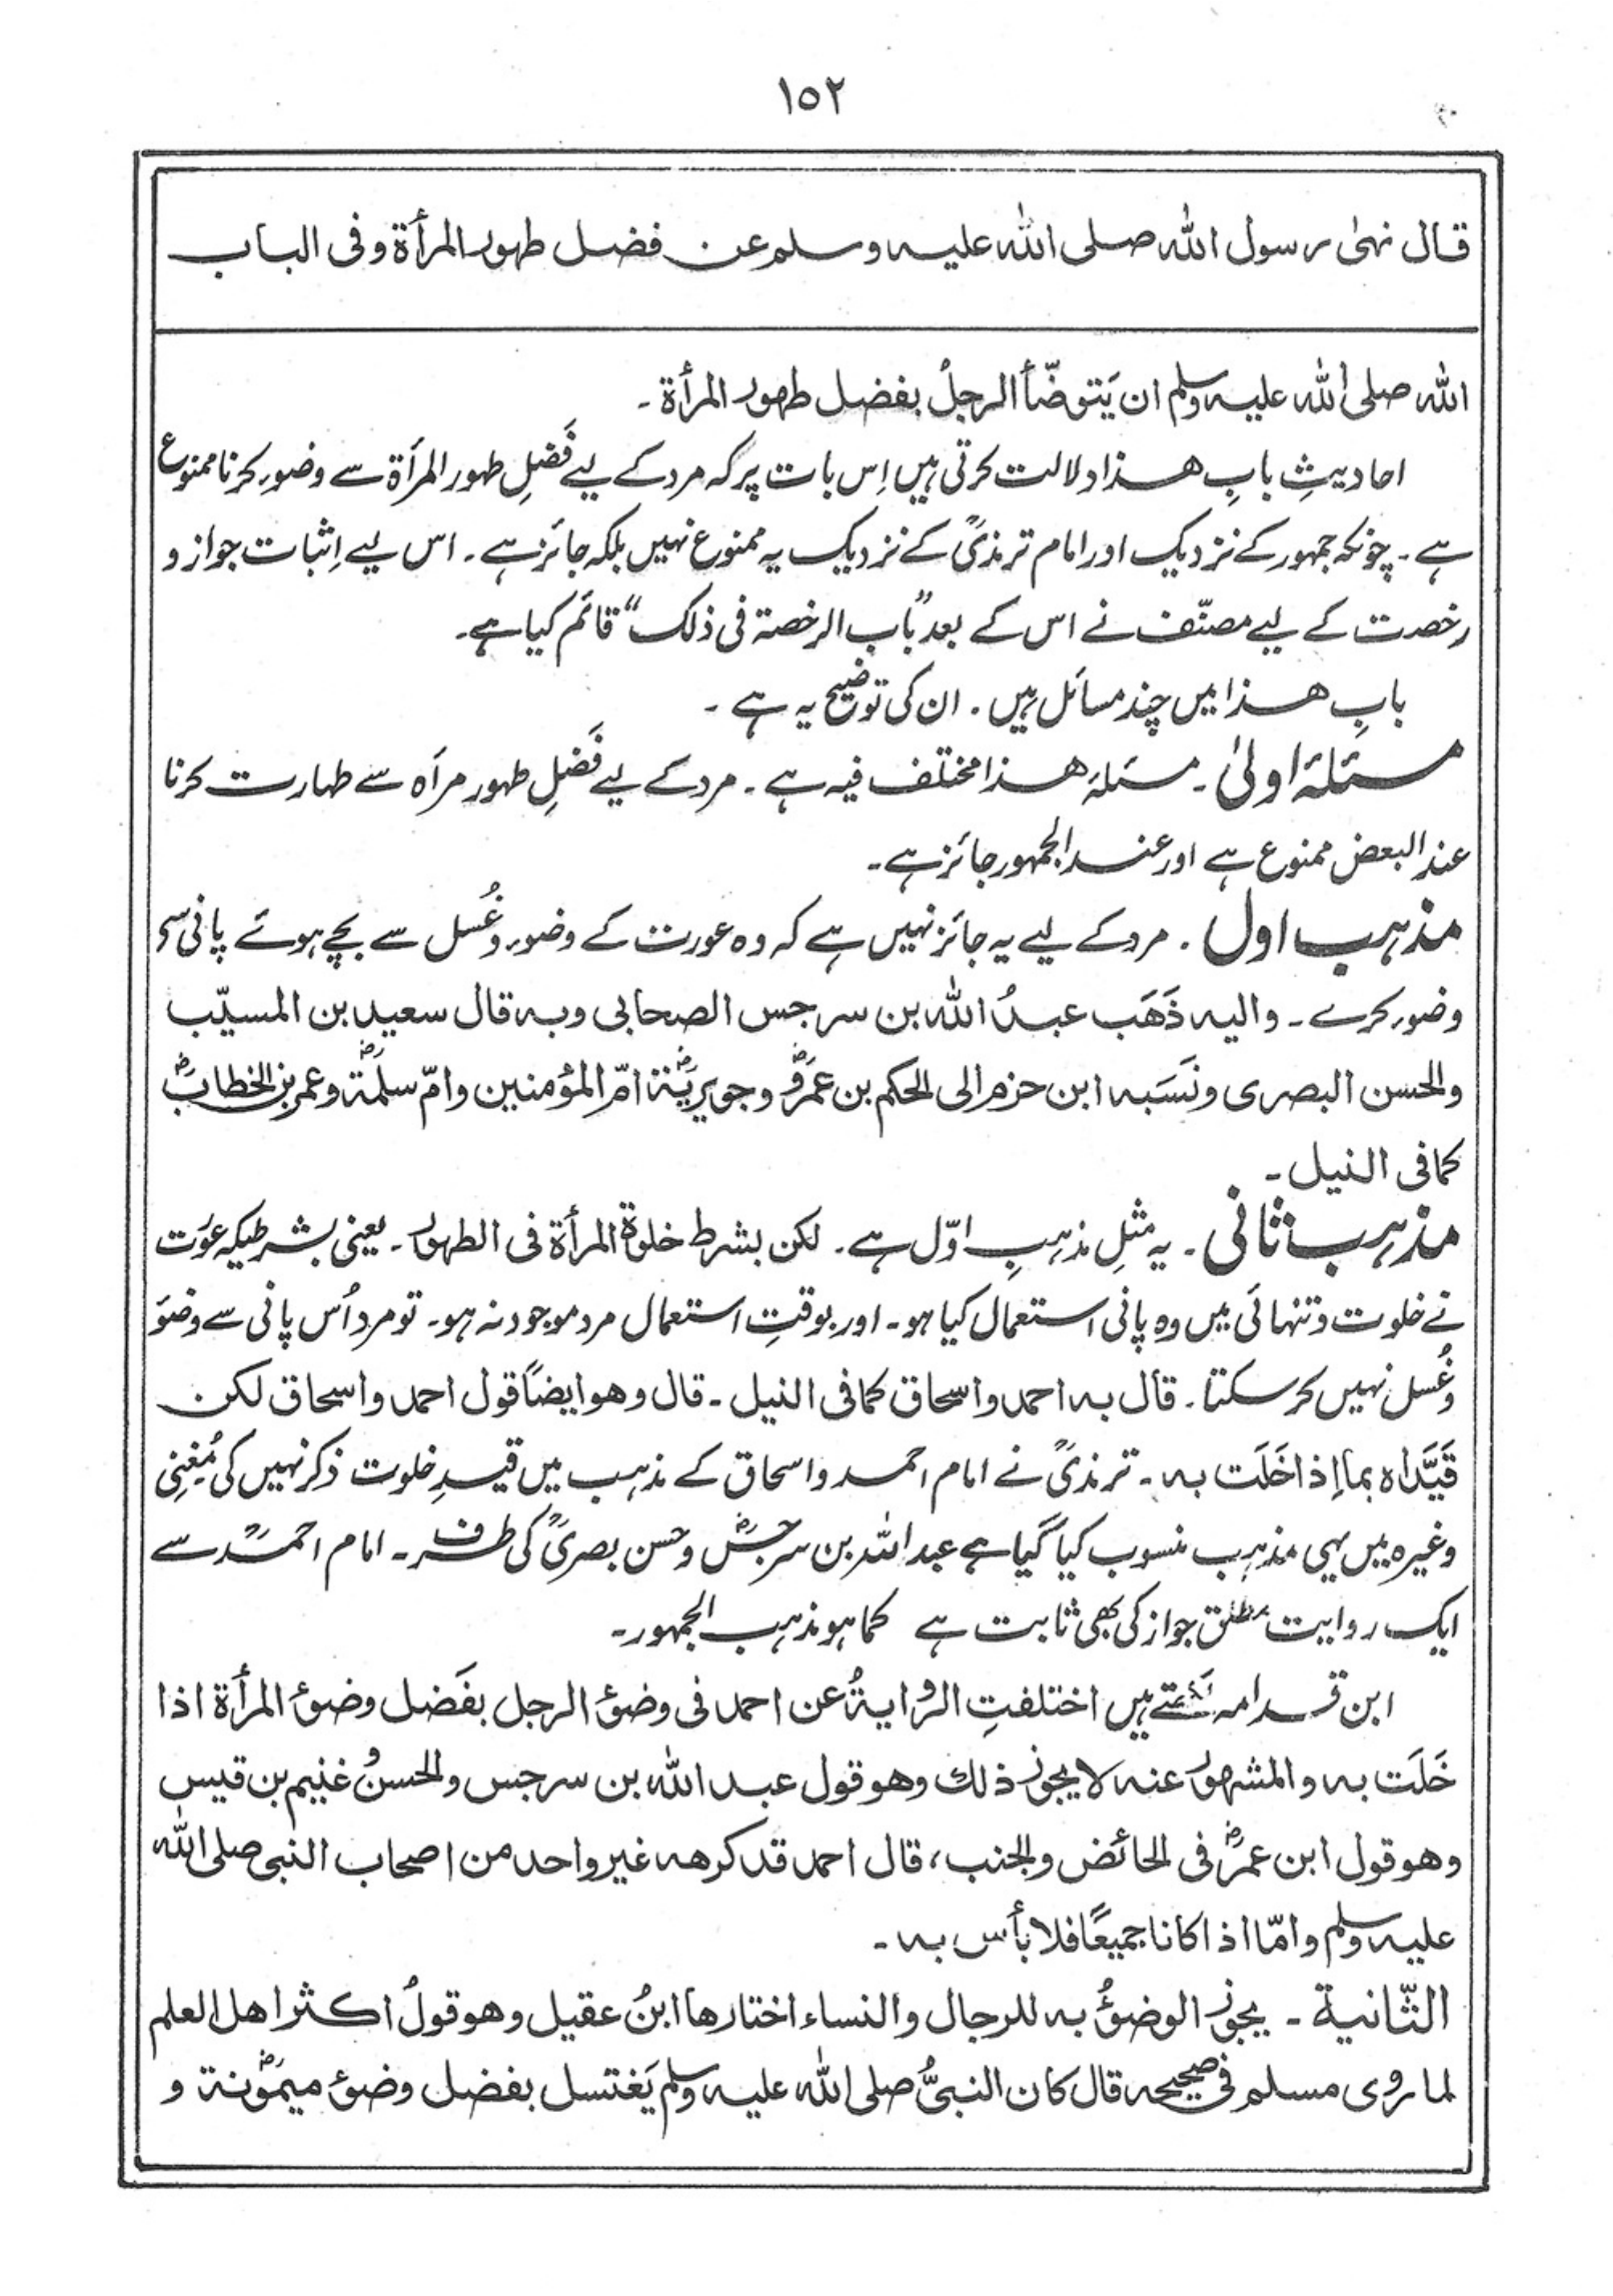 ١٥٢
قال نهىٰ رسول الله صلى الله عليه وسلم عن فضل طهور المرأة وفى الباب
الله صلى الله عليه وسلم ان يَتوضّأ الرجلُ بفضل طهور المرأة ۔
احادیثِ بابِ ھذا دلالت کرتی ہیں اِس بات پر کہ مرد کے لیے فَضلِ طہور المرأۃ سے وضوء کرنا ممنوع
ہے ۔ چونکہ جمہور کے نزدیک اور امام ترمذیؒ کے نزدیک یہ ممنوع نہیں بلکہ جائز ہے ۔ اس لیے اِثبات جواز و
رخصت کے لیے مصنّف نے اس کے بعد "باب الرخصة فی ذلک" قائم کیا ہے۔
بابِ ھذا میں چند مسائل ہیں ۔ ان کی توضیح یہ ہے ۔
مسئلۂ اولیٰ ۔ مسئلۂ ھذا مختلف فیہ ہے ۔ مرد کے لیے فَضلِ طہور مرأہ سے طہارت کرنا
عند البعض ممنوع ہے اور عند الجمہور جائز ہے۔
مذہب اول ۔ مرد کے لیے یہ جائز نہیں ہے کہ وہ عورت کے وضوء و غُسل سے بچے ہوئے پانی سے
وضوء کرے ۔ واليه ذَهَب عبدُ الله بن سرجس الصحابى وبه قال سعيد بن المسيّب
والحسن البصرى ونَسَبه ابن حزم الى الحكم بن عمروؓ وجويريةؓ امّ المؤمنين وامّ سلمةؓ وعمر بن الخطابؓ
كما فى النيل ۔
مذہب ثانی ۔ یہ مثلِ مذہبِ اوّل ہے ۔ لكن بشرط خلوة المرأة فى الطهور ۔ یعنی بشرطیکہ عورت
نے خلوت و تنہائی میں وہ پانی استعمال کیا ہو ۔ اور بوقتِ استعمال مرد موجود نہ ہو ۔ تو مرد اُس پانی سے وضوء
و غُسل نہیں کر سکتا ۔ قال به احمد واسحاق كما فى النيل ۔ قال وهو ايضًا قول احمد واسحاق لكن
قَيَّداه بما اِذا خَلَت به ۔ ترمذیؒ نے امام احمد و اسحاق کے مذہب میں قیدِ خلوت ذکر نہیں کی مُغنِی
وغیرہ میں یہی مذہب منسوب کیا گیا ہے عبد اللہ بن سرجسؓ و حسن بصریؒ کی طرف ۔ امام احمدؒ سے
ایک روایت مطلق جواز کی بھی ثابت ہے کما ہو مذہب الجمہور ۔
ابن قدامہ لکھتے ہیں اختلفتِ الروايةُ عن احمد فى وضوء الرجل بفَضل وضوء المرأة اذا
خَلَت به والمشهور عنه لا يجوز ذلك وهو قول عبد الله بن سرجس والحسنُ غنيم بن قيس
وهو قول ابن عمرؓ فى الحائض والجنب، قال احمد قد كرهه غير واحد من اصحاب النبى صلى الله
عليه وسلم وامّا اذا كانا جميعًا فلا بأس به ۔
الثّانية ۔ يجوز الوضوءُ به للرجال والنساء اختارها ابنُ عقيل وهو قولُ اكثر اهل العلم
لما روى مسلم فى صحيحه قال كان النبىُّ صلى الله عليه وسلم يَغتسل بفضل وضوء ميمونةؓ و